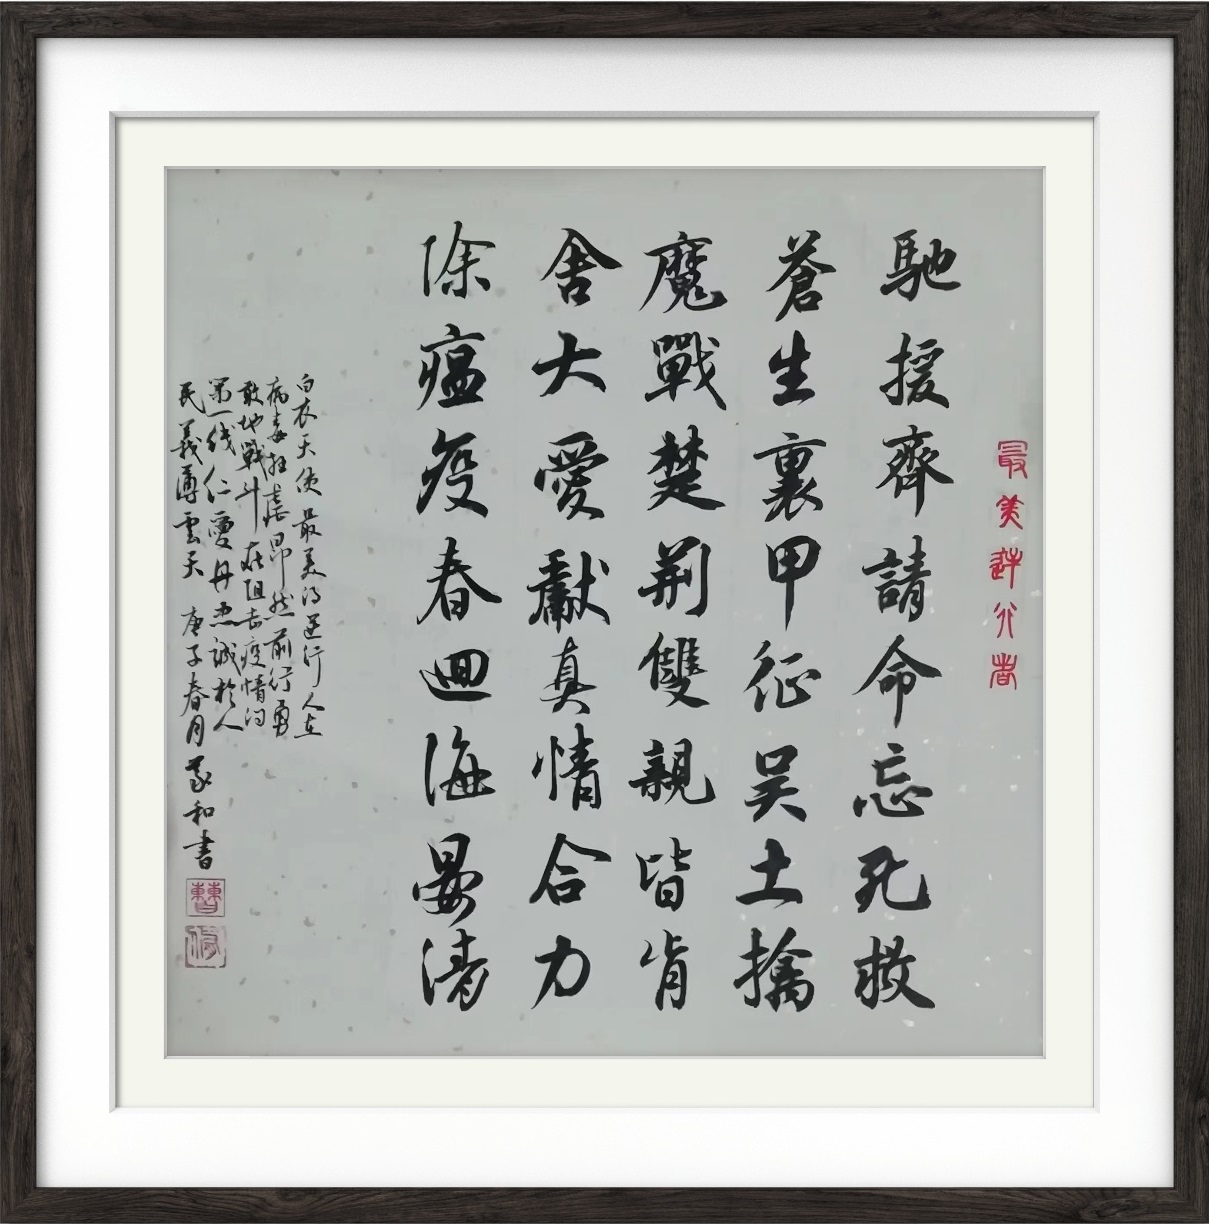 最美逆行者
馳援齊請命忘死救
蒼生裹甲征吴土擒
魔戰楚荆雙親皆肯
舍大愛獻真情合力
除瘟疫春迴海晏清
白衣天使最美的逆行人在
病毒狂虐昂然前行勇
敢地戰斗在阻击疫情的
第一线仁愛丹忠诚於人
民義薄雲天 庚子春月 和書
曹